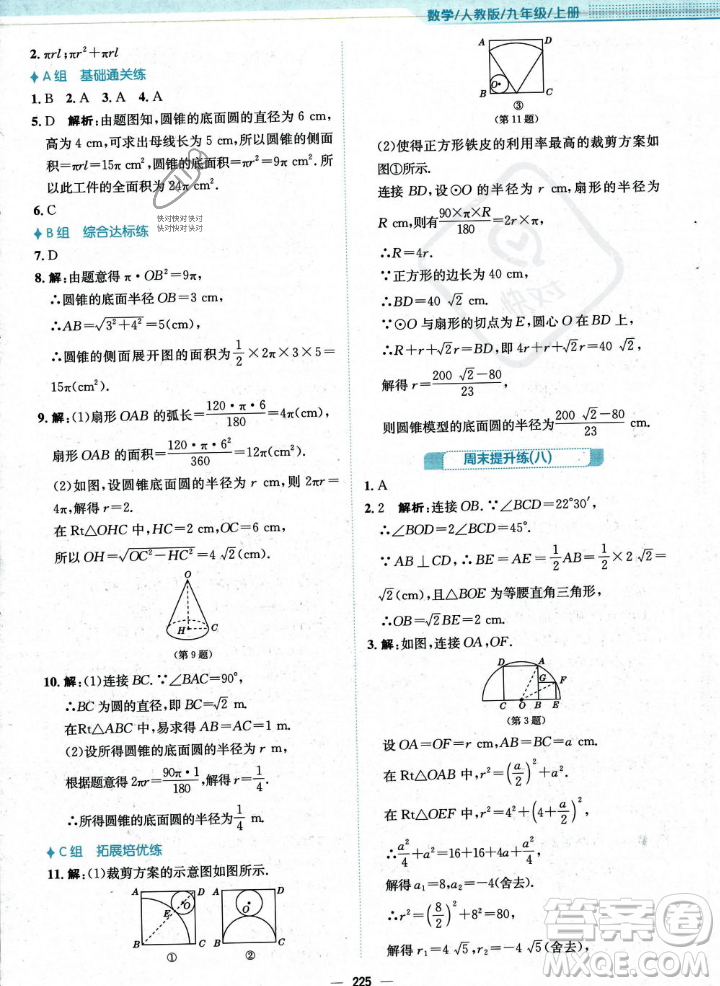 数学/人教版/九年级/上册
2. πrl;πr²+πrl
A组 基础通关练
1. B 2. A 3. A 4. A
5. D 解析:由题意知,圆锥的底面圆的直径为 6 cm,
高为 4 cm,可求出母线长为 5 cm,所以圆锥的侧面
积=πrl=15π cm²,圆锥的底面圆的面积=πr²=9π cm².
所以此工件的全面积为 24π cm².
6. C
快对快对快对
快对快对快对
B组 综合达标练
7. D
8. 解:由题意得 π·OB²=9π,
∴圆锥的底面半径 OB=3(cm),
∴AB=√(3²+4²)=5(cm),
∴圆锥的侧面展开图的面积为 1/2×2π×3×5=
15π(cm²).
9. 解:(1)扇形 OAB 的弧长=(120·π·6)/180=4π(cm),
扇形 OAB 的面积=(120·π·6²)/360=12π(cm²).
(2)如图,设圆锥底面圆的半径为 r cm,所以 2πr=
4π,解得 r=2.
在 Rt△OHC 中,HC=2 cm,OC=6 cm,
所以 OH=√(OC²-HC²)=4√2(cm).
O
H
C
(第 9 题)
10. 解:(1)连接 BC.∵∠BAC=90°,
∴BC 为圆的直径,即 BC=√2 m.
在 Rt△ABC 中,易求得 AB=AC=1 m.
(2)设所得圆锥的底面圆的半径为 r m,
根据题意得 2πr=(90π·1)/180,解得 r=1/4.
∴所得圆锥的底面圆的半径为 1/4 m.
C组 拓展培优练
11. 解:(1)裁剪方案的示意图如图所示.
A D O E B C
①
A D O B C
②
A D O B C
③
(第 11 题)
(2)使得正方形铁皮的利用率最高的裁剪方案如
图①所示.
连接 BD,设⊙O 的半径为 r cm,扇形的半径为
R cm,则有(90×π×R)/180=2πr(cm),
∴R=4r.
∵正方形的边长为 40 cm,
∴BD=40√2 cm.
∵⊙O 与扇形的切点为 E,圆心 O 在 BD 上,
∴R+r+√2r=BD,即 5r+√2r=40√2,
解得 r=(200√2-80)/23,
则圆锥模型的底面圆的半径为(200√2-80)/23 cm.
周末提升练(八)
1. A
2. 2 解析:连接 OB.∵∠BCD=22°30′,
∴∠BOD=2∠BCD=45°.
∵AB⊥CD,∴BE=AE=1/2AB=1/2×2√2=
√2(cm),且△BOE 为等腰直角三角形,
∴OB=√2BE=2 cm.
3. 解:如图,连接 OA,OF.
D A G F C O B E
(第 3 题)
设 OA=OF=r cm,AB=BC=a cm.
在 Rt△OAB 中,r²=(a/2)²+a²,
在 Rt△OEF 中,r²=4²+(4+a/2)²,
∴a²/4+a²=16+16+4a+a²/4,
解得 a₁=8,a₂=-4(舍去).
∴r²=(8/2)²+8²=80,
解得 r₁=4√5,r₂=-4√5(舍去),
225
答案圈
MXQE.COM